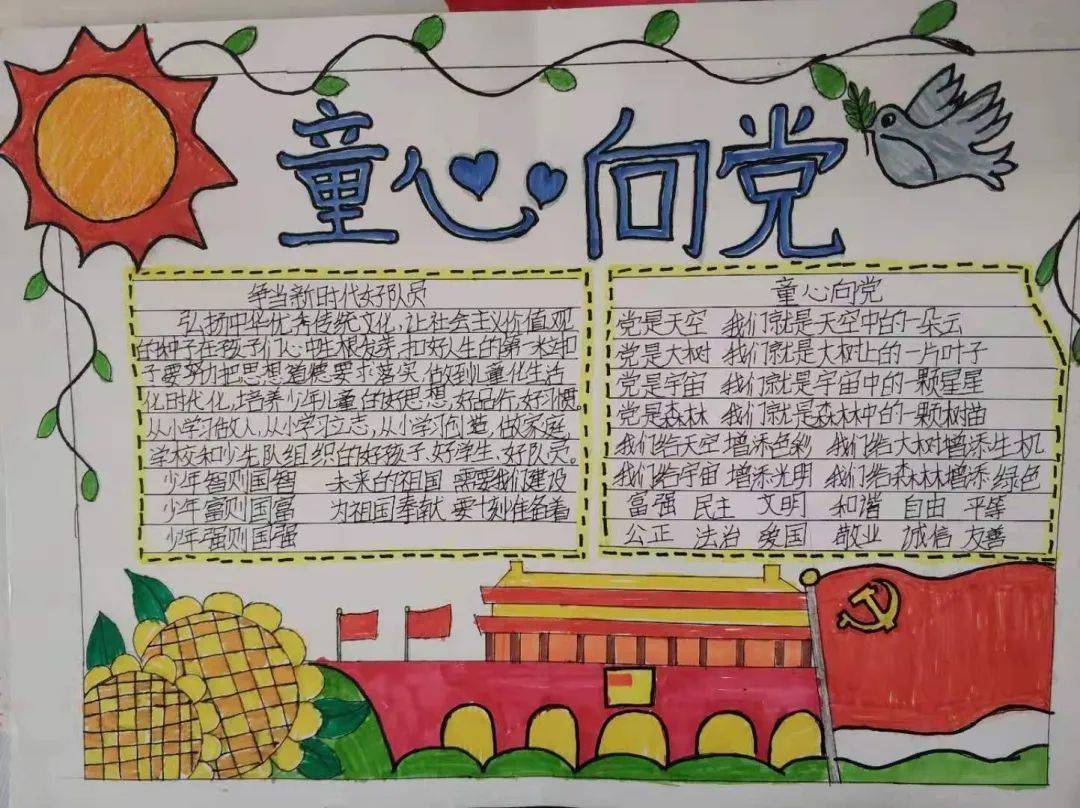 童心向党
争当新时代好队员
弘扬中华优秀传统文化，让社会主义价值观
的种子在孩子们心中生根发芽，扣好人生的第一粒扣
子要努力把思想道德要求落实，做到儿童化生活
化时代化，培养少年儿童的好思想，好品行，好习惯。
从小学习做人，从小学习立志，从小学习创造，做家庭
学校和少先队组织的好孩子，好学生，好队员。
少年智则国智 未来的祖国 需要我们建设
少年富则国富 为祖国奉献 要时刻准备着
少年强则国强
童心向党
党是天空 我们就是天空中的一朵云
党是大树 我们就是大树上的一片叶子
党是宇宙 我们就是宇宙中的一颗星星
党是森林 我们就是森林中的一颗树苗
我们给天空增添色彩 我们给大树增添生机
我们给宇宙增添光明 我们给森林增添绿色
富强 民主 文明 和谐 自由 平等
公正 法治 爱国 敬业 诚信 友善